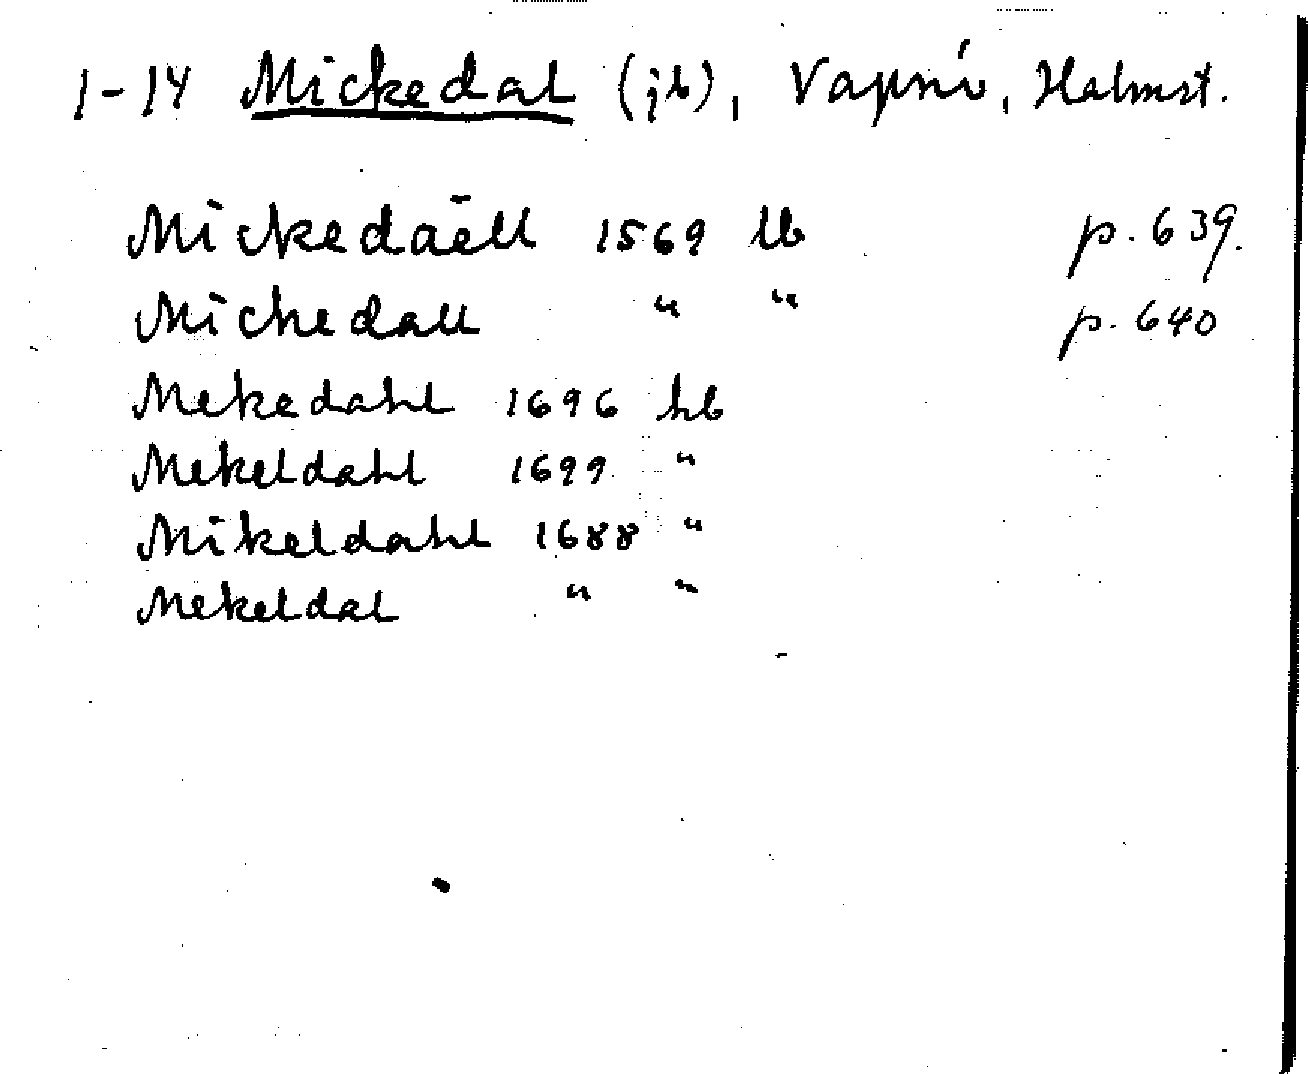 1-14 Mickedal (jb), Vapnö, Halmst.
Mickedaell 1569 lb p. 639.
Mickedall " " p. 640
Mekedahl 1696 hb
Mekeldahl 1699 "
Mikeldahl 1688 "
Mekeldal " "